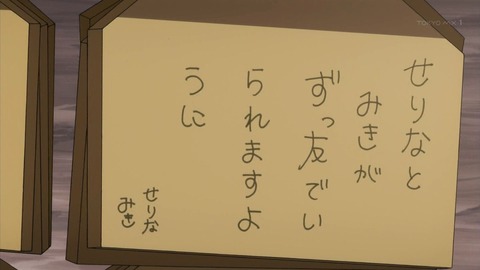 せりなと
みきが
ずっ友でい
られますよ
うに
せりな
みき
TOKYO MX 1